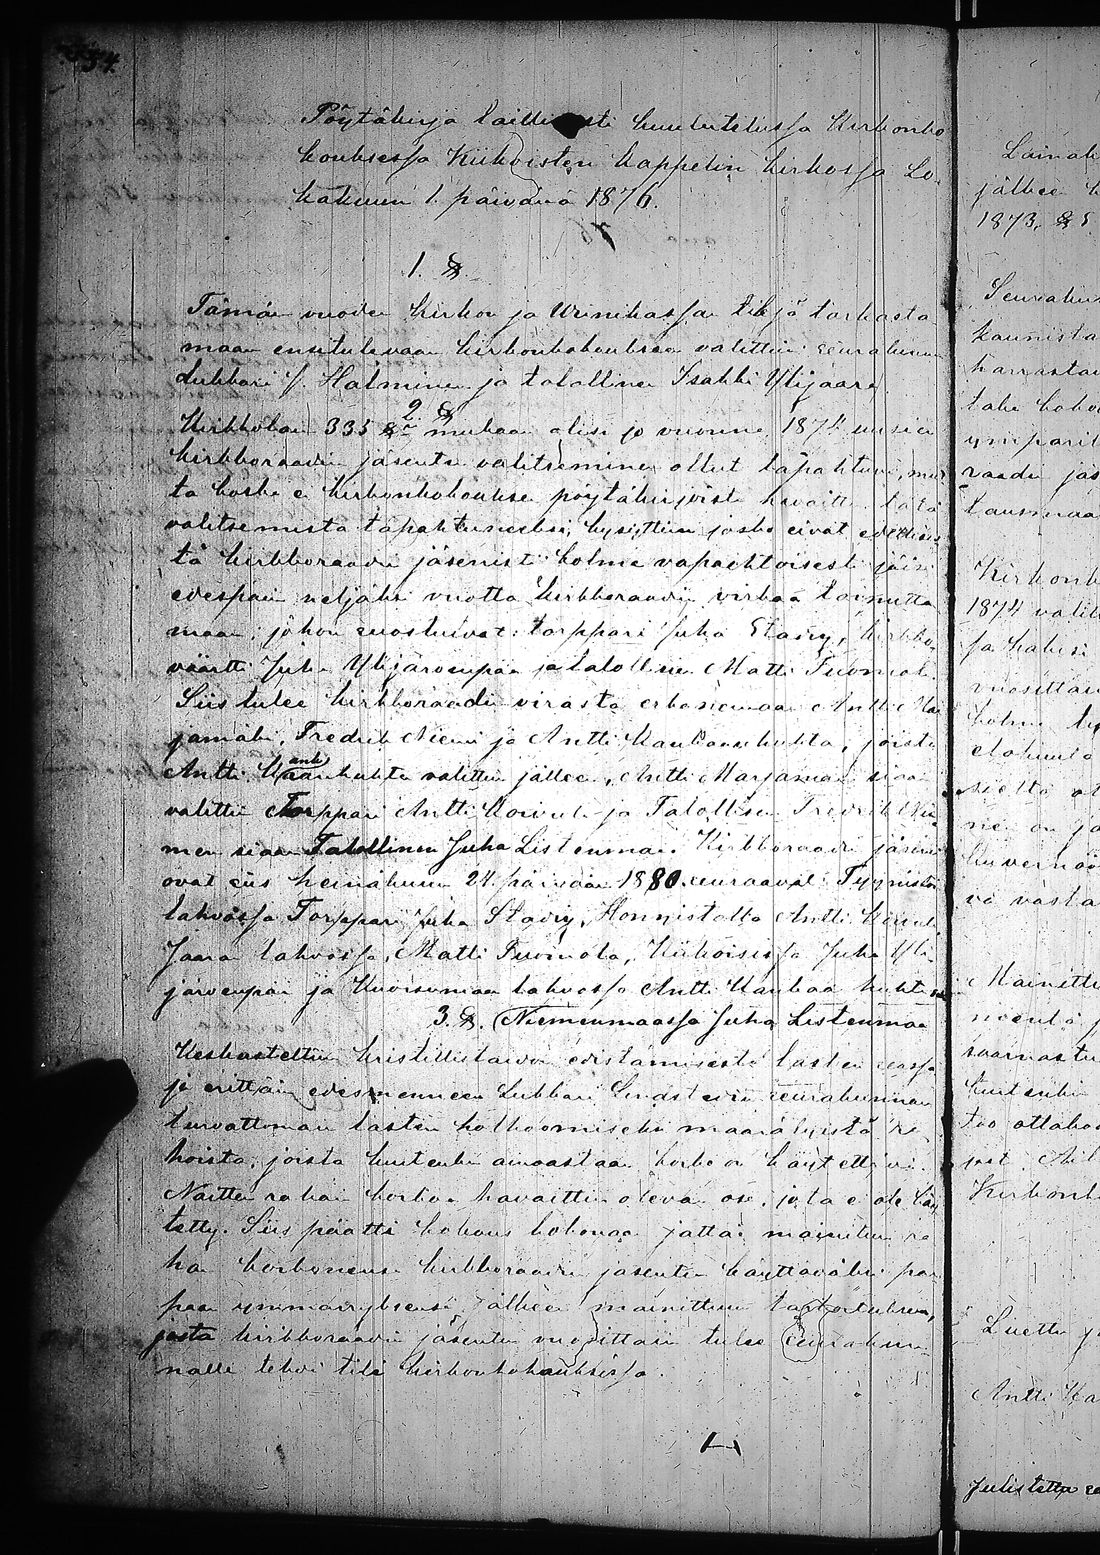 54.
Pöytäkirja laillisesti kuulutetussa Kirkonko
kouksessa Kiikoisten kappelin kirkossa Lo-
kakuun 1. päivänä 1876.
1. §.
Tämän vuoden kirkon ja Wiinikassan tilejä tarkasta
maan ensitulevaan kirkonkokoukseen valittiin seurakunnan
lukkari J. Halminen ja talollinen Isakki Ylijaara
2. §
Kirkkolain 335 §:n mukaan olisi jo vuonna 1874 uusien
kirkkoraadin jäsenten valitseminen ollut tapahtuva, mut
ta koska ei kirkonkokouksen pöytäkirjoista havaittu tätä
valitsemista tapahtuneeksi, kysyttiin josko eivät edellisis
tä kirkkoraadin jäsenistä kolme vapaehtoisesti jäisi
edespäin neljäksi vuotta kirkkoraadin virkaa toimitta
maan; johon suostuivat: torppari Juha Stavig, kirkko
väärtti Juha Ylijärvenpää ja talollinen Matti Tuomola
Siis tulee kirkkoraadin virasta erkanemaan Antti Mar
jamäki, Fredrik Niemi ja Antti Kaukaankuhta, joista
Antti Kaukaankuhta valittiin jälleen, Antti Marjamäen siaan
valittiin Torppari Antti Koivula ja Talollisen Fredrik Nie
men siaan Talollinen Juha Listenmaa. Kirkkoraadin jäseni
ovat siis heinäkuun 24. päivään 1880. seuraavat: Tyynistön
lahvossa Torppari Juha Stavig, Honnistolta Antti Koivula
Jaaran lahvossa, Matti Tuomola, Kiikoisissa Juha Yli
järvenpää ja Kuorsumaan lahvossa Antti Kaukaankuhta
3. §. Niemenmaassa Juha Listenmaa
Keskusteltiin kristillistaidon edistämisestä lasten seassa
ja erittäin edesmenneen Lukkari Lindstedtin seurakunnan
turvattoman lasten holhoomiseksi määrätyistä ra
hoista, joista kuitenkin ainoastaan korko on käytettävä.
Näitten rahain korkoa havaittiin olevan osa, jota ei ole käy
tetty. Siis päätti kokous kokonaan jättää mainitun ra
han korkonensa kirkkoraadin jäsenten käyttäväksi par
haan ymmärryksensä jälkeen mainittuun tarkoitukseen,
josta kirkkoraadin jäsenten vuosittain tulee seurakun
nalle tehdä tili kirkonkokouksessa.
Lainak
jälkeen k
1873, § 5
Seurakun
kaunista
harrastan
ympäril
raadin jäs
Kirkonk
1874 valit
vuosittain
kolme
va vasta
Mainittu
saarnastu
kuitenkin
Kirkonk
Luettu j
Antti Ka
Julistettu